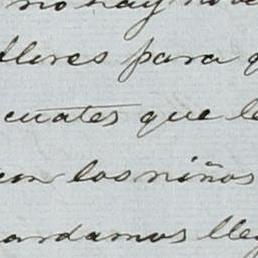 no hay nove
lleres para q
cuates que le
con los niños
ardamos lleg